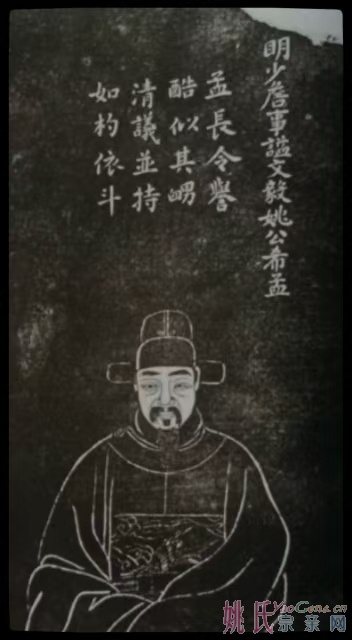 明少詹事諡文毅姚公希孟
孟長令譽
酷似其甥
清議並持
如杓依斗
姚氏宗亲网
YaoGens.cn